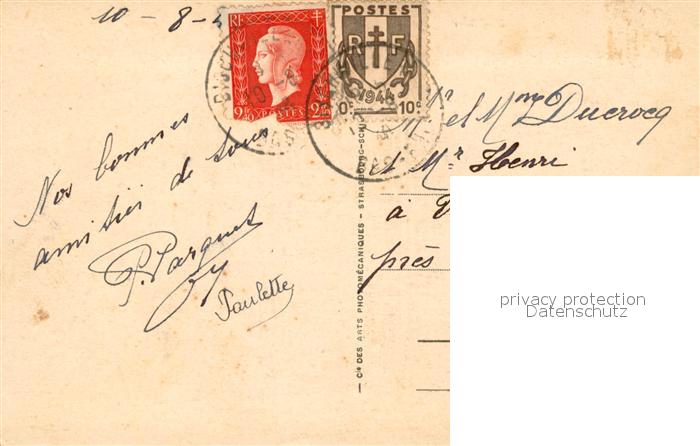 10 - 8 -
RF
2f40 POSTES 2f40
POSTES
RF
1944
10c 10c
Nos bonnes
amitiés de tous
P. Parquet
Paulette
Mr et Mme Ducrocq
et Mr Henri
à
près
— Cie DES ARTS PHOTOMÉCANIQUES - STRASBOURG-SCHI
privacy protection
Datenschutz